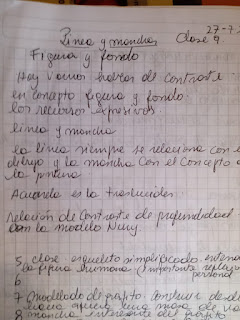 27-7
Linea y mancha clase 9
Figura y fondo
Hay varios
de contraste
en concepto figura y fondo
los recursos expresivos.
linea y mancha
la linea siempre se relaciona con e
dibujo y la mancha con el concepto d
la pintura
Acuarela es la traslucidez
relación de contraste de profundidad
con la modelo Nury
5 clase esqueleto simplificado
la figura humana (importante
personal
6
7 modelado de grafito. construir de
8 mancha